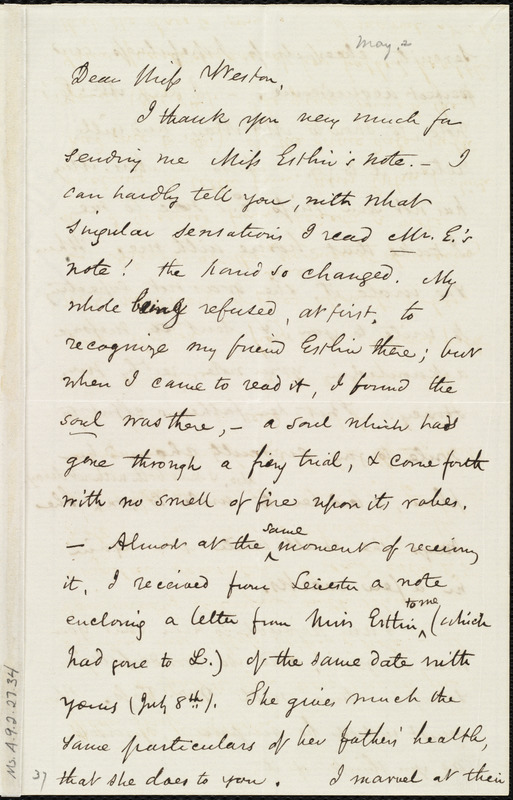 May. 2
Dear Miss Weston,
I thank you very much for
sending me Miss Estlin's note. — I
can hardly tell you, with what
singular sensations I read Mr. E.'s
note! the hand so changed. My
whole being refused, at first, to
recognize my friend Estlin there; but
when I came to read it, I found the
soul was there, — a soul which had
gone through a fiery trial, & come forth
with no smell of fire upon its robes.
— Almost at the same moment of receiving
it, I received from Leicester a note
enclosing a letter from Miss Estlin to me (which
had gone to L.) of the same date with
yours (July 8th). She gives much the
same particulars of her father's health,
that she does to you. I marvel at their
Ms. A.9.2.27.34
37